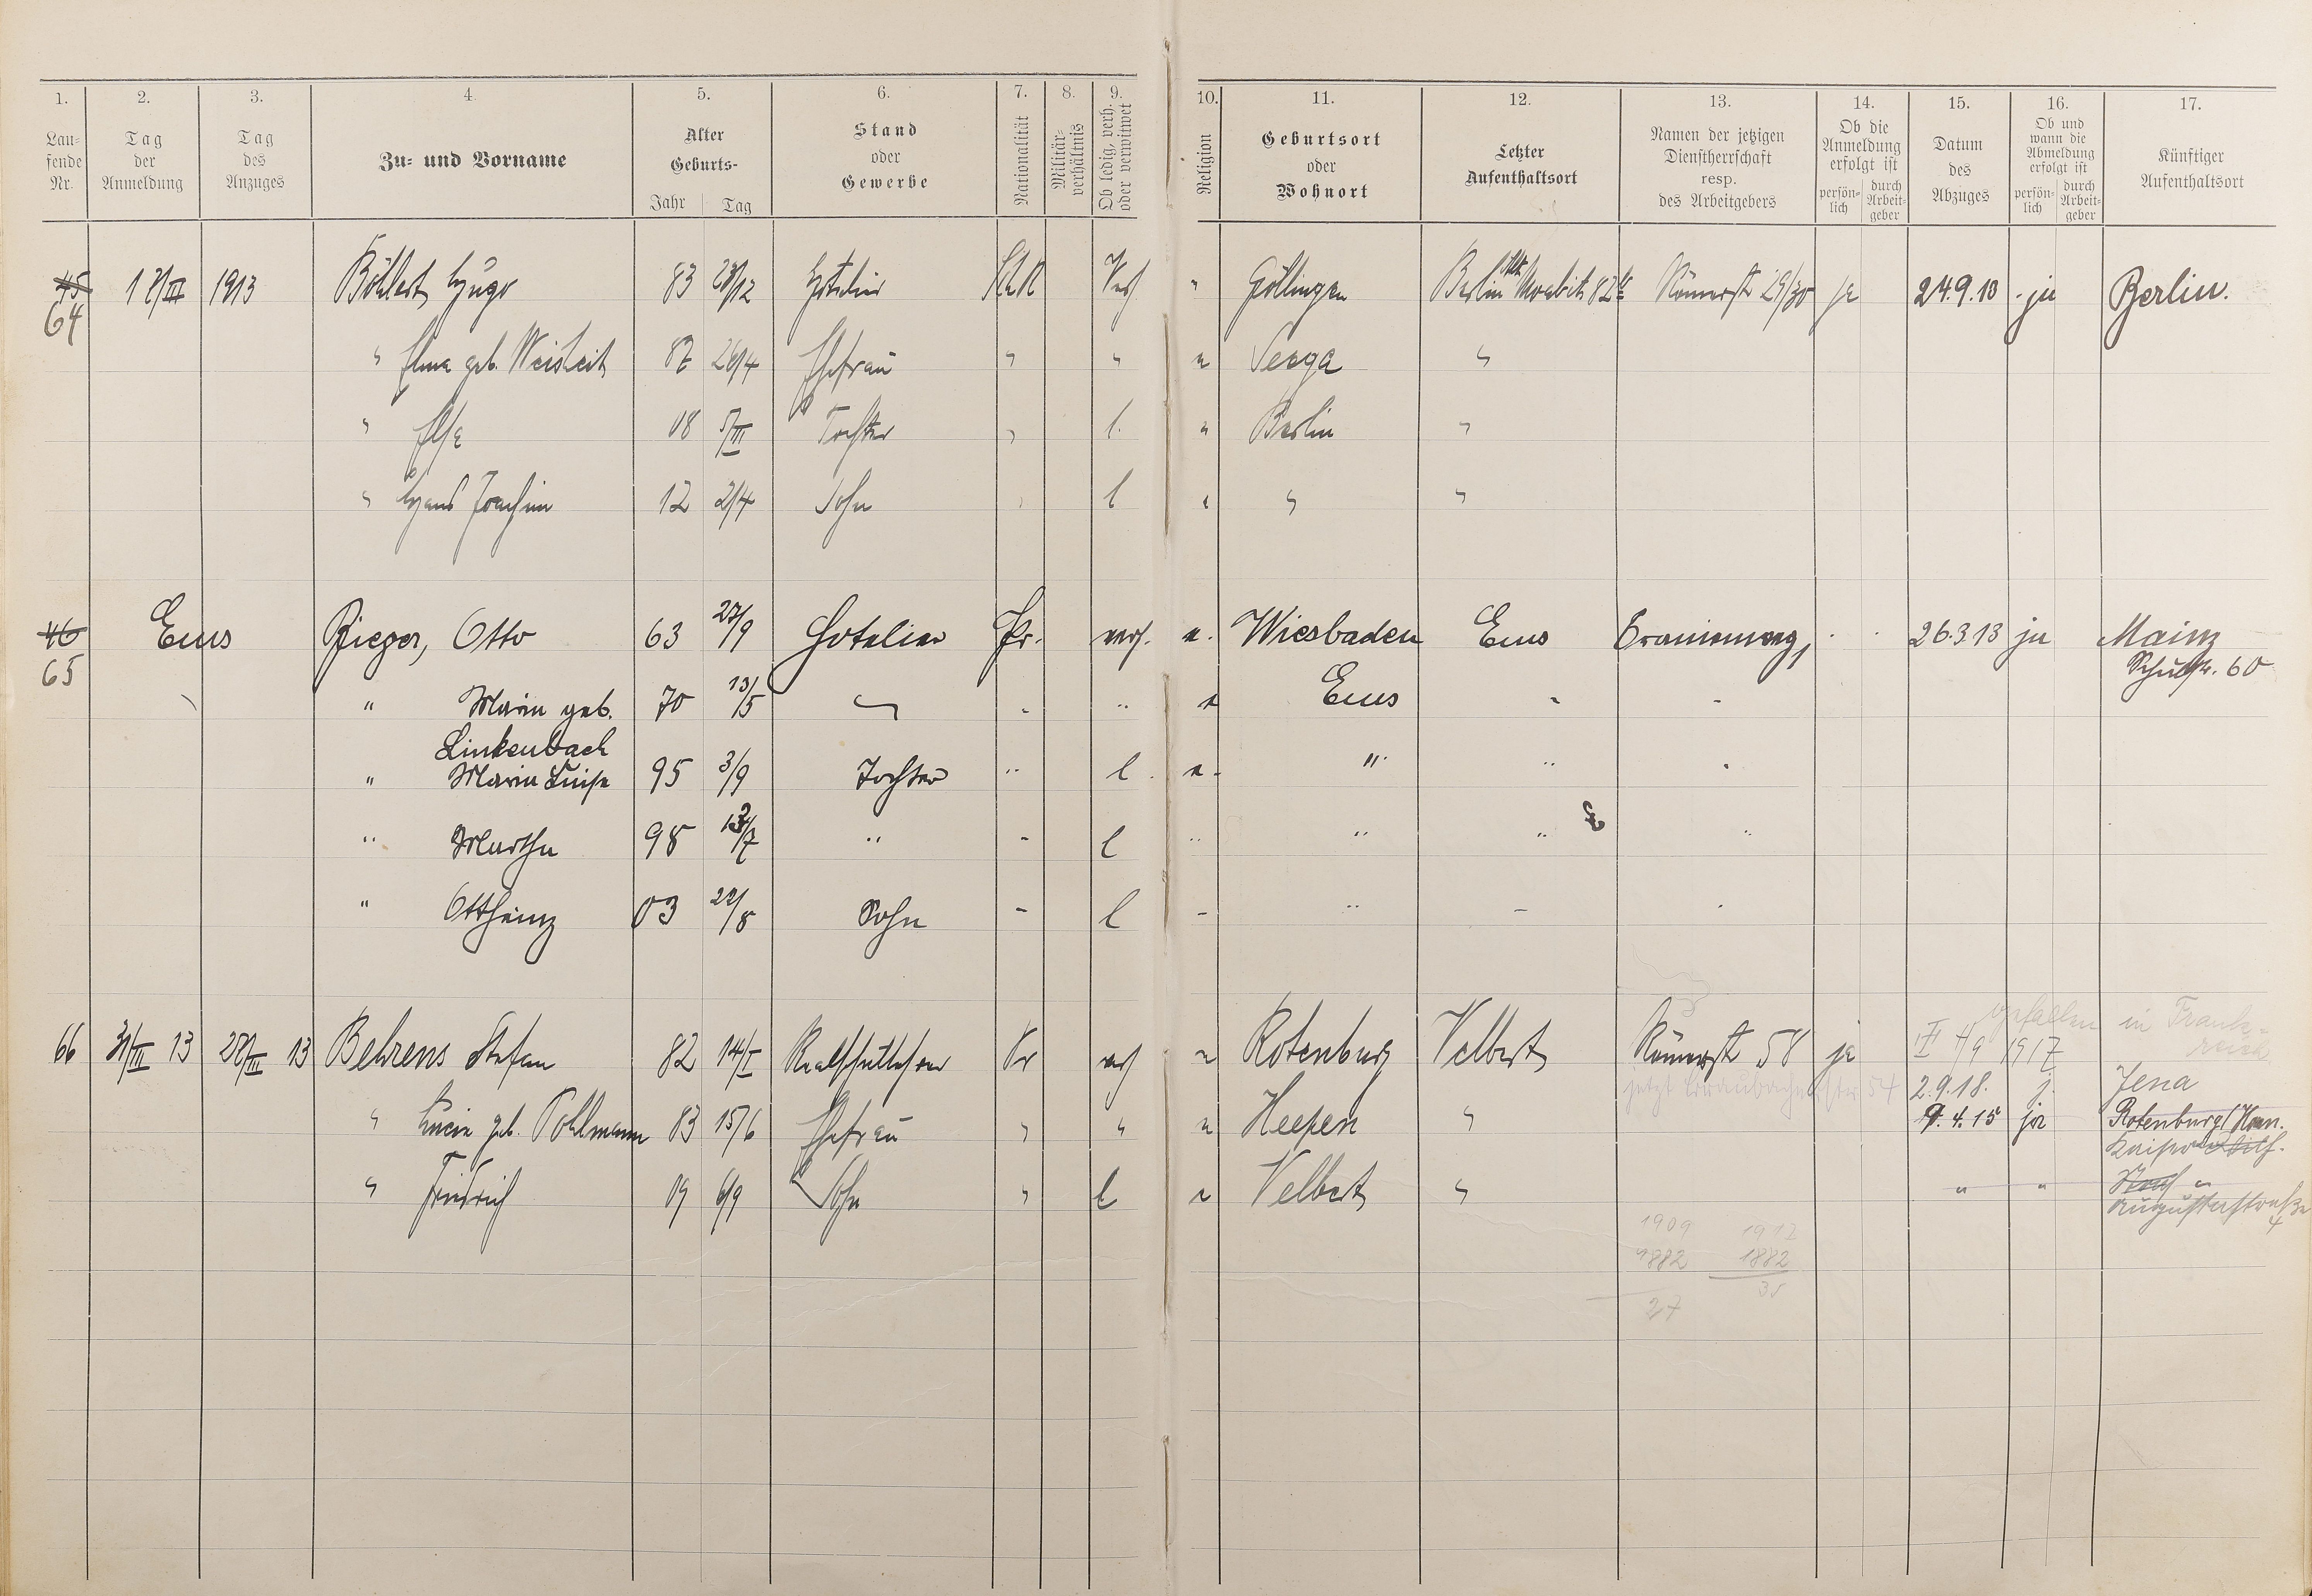 1. 2. 3. 4. 5. 6. 7. 8. 9. 10. 11. 12. 13. 14. 15. 16. 17.
Lau-
fende
Nr.
Tag
der
Anmeldung
Tag
des
Anzuges
Zu- und Vorname
Alter
Geburts-
Jahr Tag
Stand
oder
Gewerbe
Nationalität
Militär-
verhältnis
Ob ledig, verh.
oder verwitwet
Religion
Geburtsort
oder
Wohnort
Letzter
Aufenthaltsort
Namen der jetzigen
Dienstherrschaft
resp.
des Arbeitgebers
Ob die
Anmeldung
erfolgt ist
persön-
lich
durch
Arbeit-
geber
Datum
des
Abzuges
Ob und
wann die
Abmeldung
erfolgt ist
persön-
lich
durch
Arbeit-
geber
Künftiger
Aufenthaltsort
45 1913 Böhlert Hugo 83 28/12 Hotelier Verh " Göllingen Berlin Moabit 82 Römerstr 29/30 ja 24.9.13 ja Berlin.
64
" geb. Weisheit 87 26/4 Ehefrau " " " Seega "
" Else 08 5/III Tochter " l. " Berlin "
" Hans Joachim 12 2/4 Sohn " l " " "
46 Ems Rieger, Otto 63 27/9 Hotelier Pr. verh. e. Wiesbaden Ems Oranienweg, 26.3.13 ja Mainz
65 Schulstr. 60
" Marie geb. 70 13/5 " " e Ems " "
Linkenbach
" Marie Luise 95 3/9 Tochter " l e. " " "
" Martha 98 13/7 " " l " " " "
" Ottheinz 03 22/8 Sohn " l " " " "
66 31/III 13 28/III 13 Behrens Stefan 82 14/I Realschullehrer Pr verh e Rotenburg Velbert Römerstr 58 ja gefallen in Frank-
4/9 1917 reich
jetzt Braubacherstr 54 2.9.18. j. Jena
" Lucie geb. Pohlmann 83 15/6 Ehefrau " " e Heepen " 9.4.15 ja Rotenburg/Han.
" Friedrich 09 6/9 Sohn " l e Velbert " " " "
Augustastraße
4
1909 1917
1882 1882
27 35